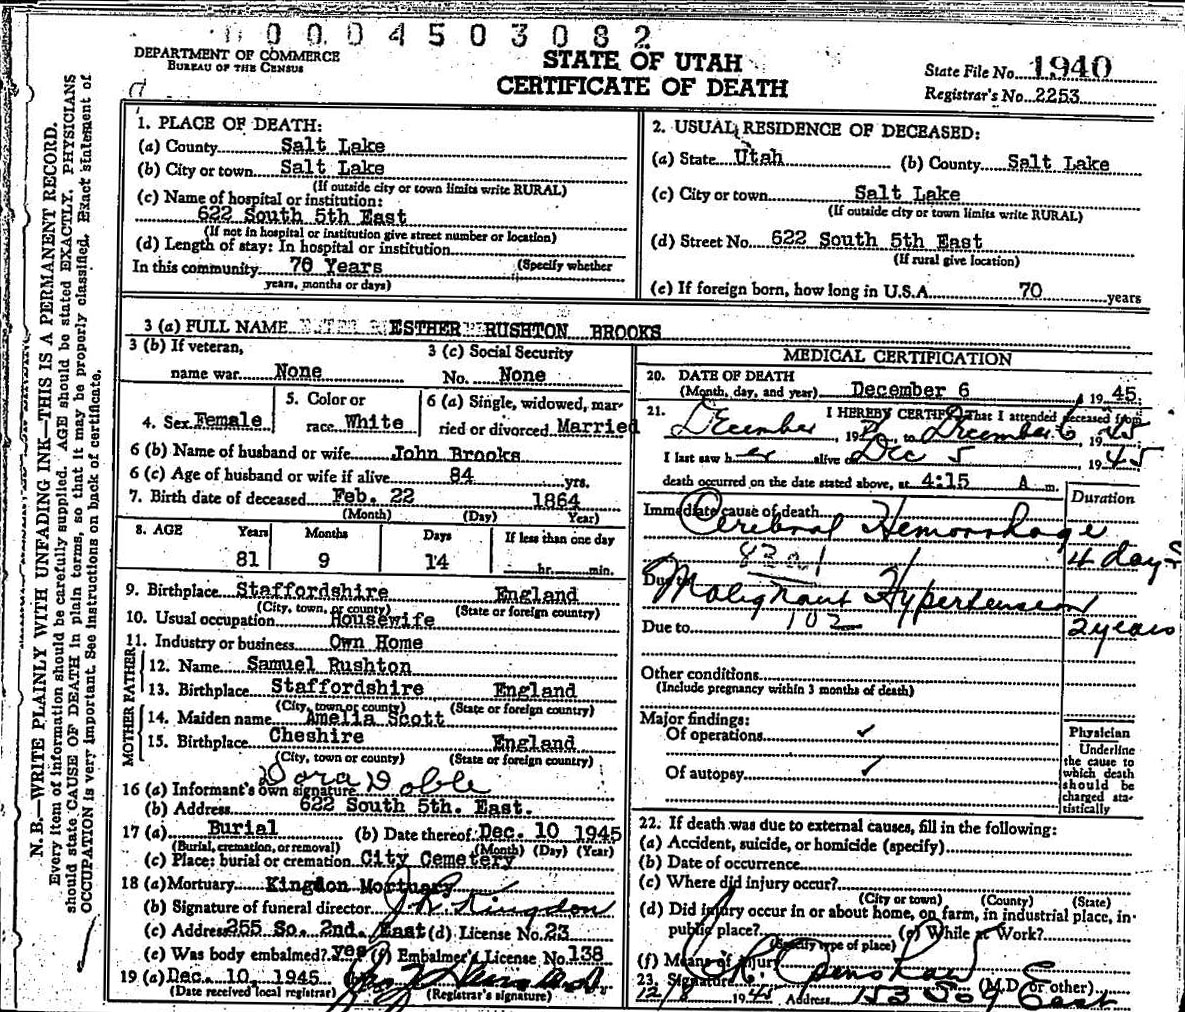 0004503082
DEPARTMENT OF COMMERCE
BUREAU OF THE CENSUS
STATE OF UTAH
CERTIFICATE OF DEATH
State File No. 1940
Registrar's No. 2253
N. B.—WRITE PLAINLY WITH UNFADING INK—THIS IS A PERMANENT RECORD.
Every item of information should be carefully supplied. AGE should be stated EXACTLY. PHYSICIANS
should state CAUSE OF DEATH in plain terms, so that it may be properly classified. Exact statement of
OCCUPATION is very important. See instructions on back of certificate.
1. PLACE OF DEATH:
(a) County Salt Lake
(b) City or town Salt Lake
(If outside city or town limits write RURAL)
(c) Name of hospital or institution:
622 South 5th East
(If not in hospital or institution give street number or location)
(d) Length of stay: In hospital or institution
In this community 70 Years (Specify whether
years, months or days)
2. USUAL RESIDENCE OF DECEASED:
(a) State Utah (b) County Salt Lake
(c) City or town Salt Lake
(If outside city or town limits write RURAL)
(d) Street No. 622 South 5th East
(If rural give location)
(e) If foreign born, how long in U.S.A. 70 years
3 (a) FULL NAME ESTHER RUSHTON BROOKS
3 (b) If veteran, 3 (c) Social Security
name war None No. None
4. Sex Female 5. Color or race White 6 (a) Single, widowed, married or divorced Married
6 (b) Name of husband or wife John Brooks
6 (c) Age of husband or wife if alive 84 yrs.
7. Birth date of deceased Feb. 22 1864
(Month) (Day) Year)
8. AGE Years Months Days If less than one day
81 9 14 hr. min.
9. Birthplace Staffordshire England
(City, town, or county) (State or foreign country)
10. Usual occupation Housewife
11. Industry or business Own Home
FATHER
12. Name Samuel Rushton
13. Birthplace Staffordshire England
(City, town or county) (State or foreign country)
MOTHER
14. Maiden name Amelia Scott
15. Birthplace Cheshire England
(City, town or county) (State or foreign country)
16 (a) Informant's own signature Dora Doble
(b) Address 622 South 5th. East.
17 (a) Burial (b) Date thereof Dec. 10 1945
(Burial, cremation, or removal) (Month) (Day) (Year)
(c) Place: burial or cremation City Cemetery
18 (a) Mortuary Kingdon Mortuary
(b) Signature of funeral director J R Kingdon
(c) Address 255 So. 2nd. East (d) License No. 23
(e) Was body embalmed? yes (f) Embalmer's License No. 138
19 (a) Dec. 10, 1945
(Date received local registrar) (Registrar's signature)
MEDICAL CERTIFICATION
20. DATE OF DEATH
(Month, day, and year) December 6, 1945.
21. I HEREBY CERTIFY That I attended deceased from
December , 19 to December 6, 1945
I last saw her alive on Dec 5, 1945
death occurred on the date stated above, at 4:15 A m.
Duration
Immediate cause of death
Cerebral Hemorrhage
4 days
Due to
Malignant Hypertension
102
Due to 2 years
Other conditions
(Include pregnancy within 3 months of death)
Major findings:
Of operations ✓
Of autopsy ✓
Physician
Underline
the cause to
which death
should be
charged sta-
tistically
22. If death was due to external causes, fill in the following:
(a) Accident, suicide, or homicide (specify)
(b) Date of occurrence
(c) Where did injury occur?
(City or town) (County) (State)
(d) Did injury occur in or about home, on farm, in industrial place, in-
public place? (e) While at Work?
(Specify type of place)
(f) Means of injury
23. Signature (M.D. or other)
12/8 1945 Address 153 So 9 East